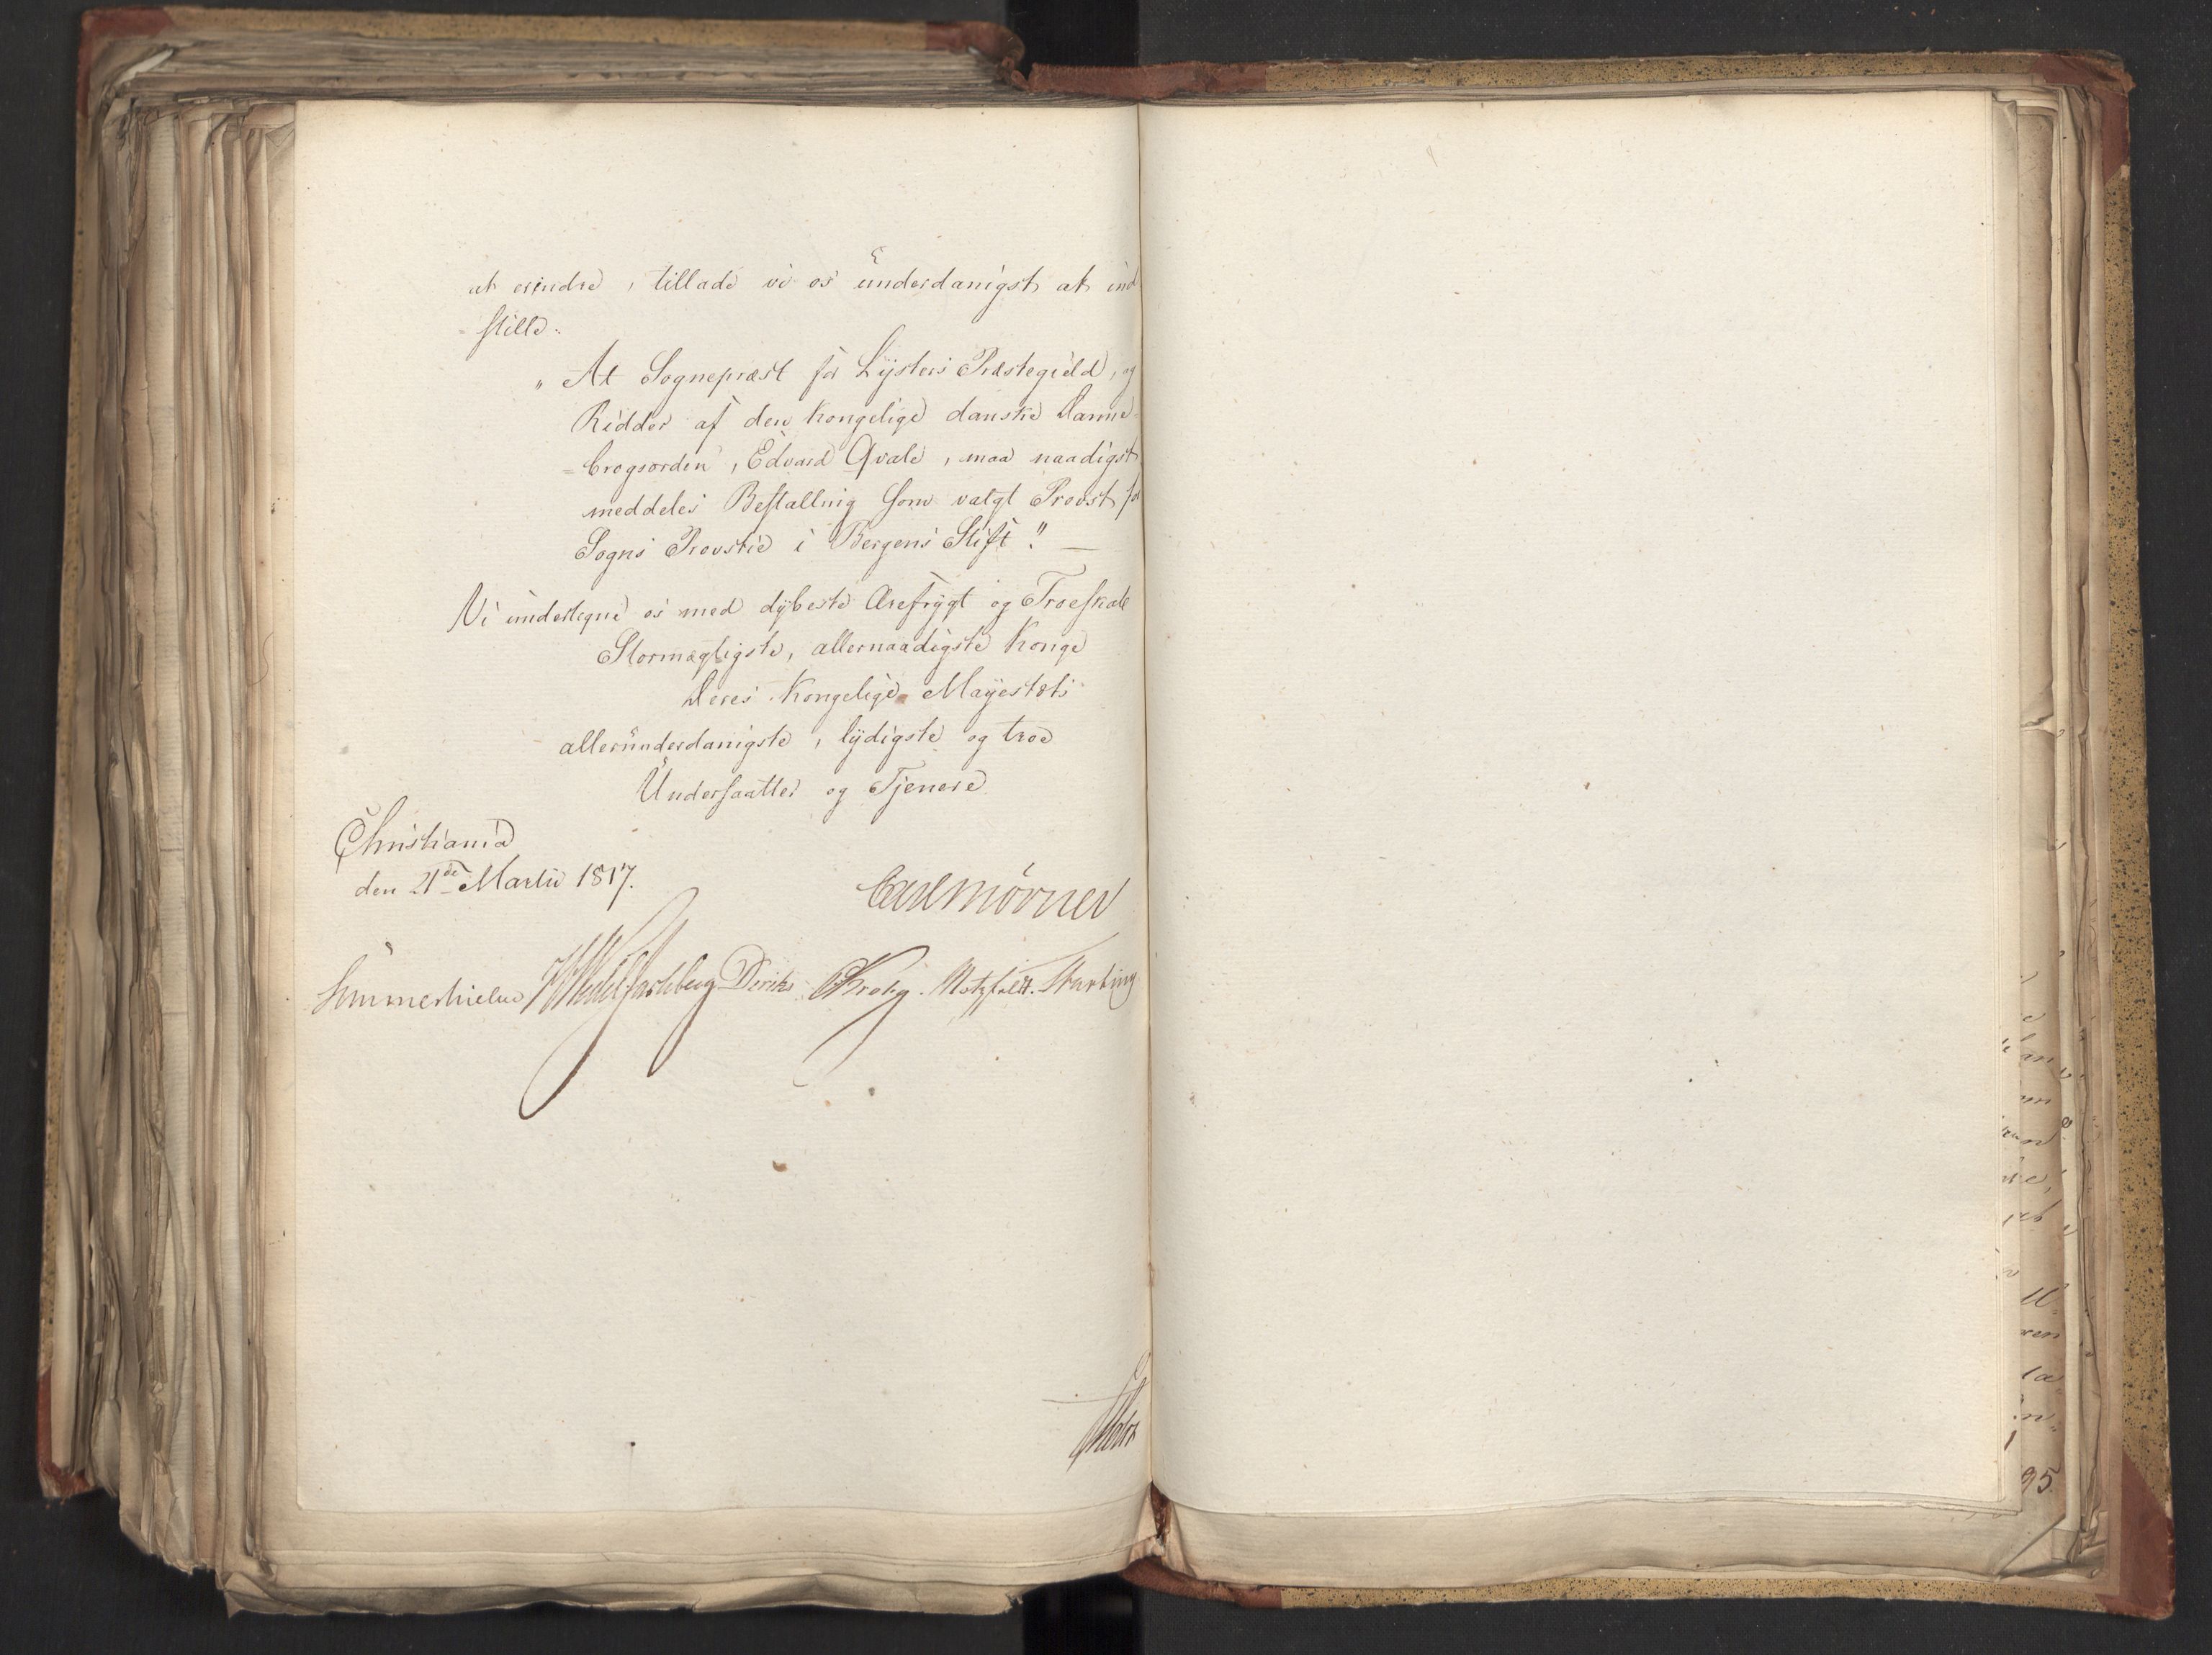 at erindre, tillade vi os underdanigst at ind
=stille:
„At Sognepræst for Lysters Præstegield, og
Ridder af den kongelige danske Danne=
=brogsorden, Edvard Qvale, maa naadigst
meddeles Bestalling som valgt Provst for
Sogns Provstie i Bergens Stift." —
Vi undertegne os med dybeste Ærefrygt og Troeskab
Stormægtigste, allernaadigste Konge
Deres Kongelige Mayestæts
allerunderdanigste, lydigste og troe
Undersaatter og Tjenere
Christiania
den 21de Martii 1817.
Carl Mörner
Sommerhielm HWedel Jarlsberg Diriks CKrohg. Motzfeldt. Harting
95